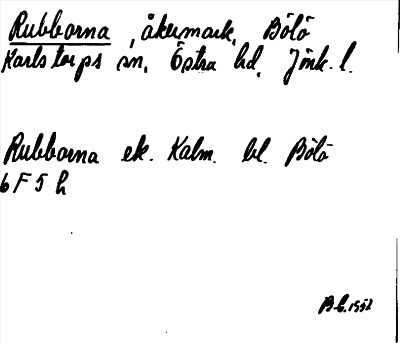 Rubborna, åkermark, Bölö
Karlstorps sn, Östra hd, Jönk. l.
Rubborna ek. Kalm. bl. Bölö
6 F 5 h
B-l. 1952